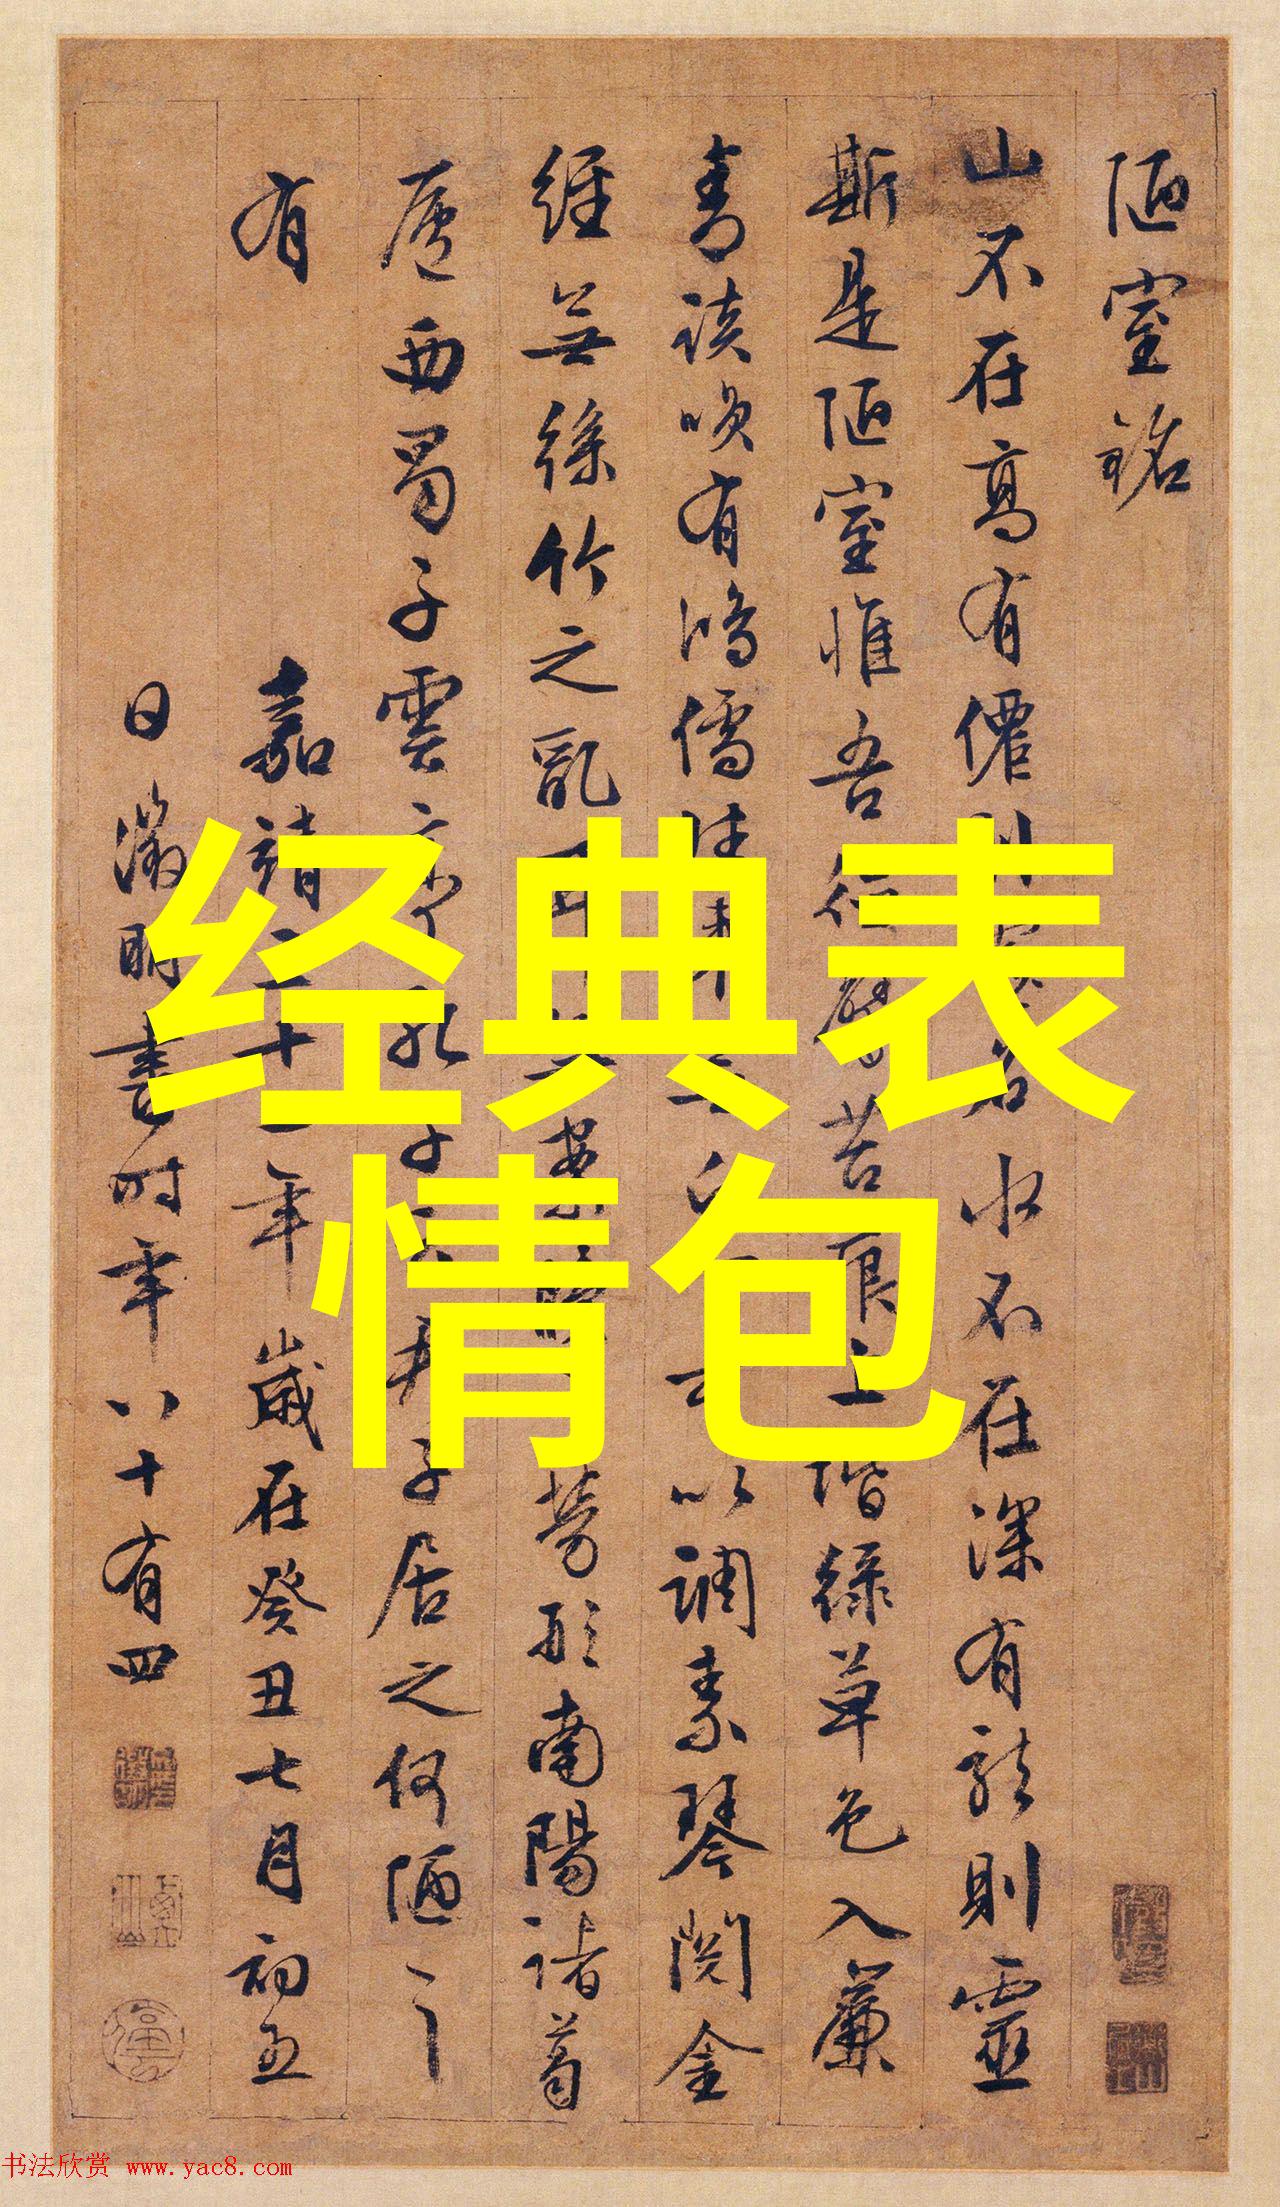 陋室銘
山不在高有僊則名水不在深有龍則靈
斯是陋室惟吾德馨苔痕上堦綠草色入簾
青談咲有鴻儒往來無白丁可以調素琴閱金
經無絲竹之亂耳無案牘之勞形南陽諸葛
廬西蜀子雲亭孔子云君子居之何陋之
有
嘉靖三十二年歲在癸丑七月初五
日徵明書時年八十有四
经典表
情包
书法欣赏 www.yac8.com